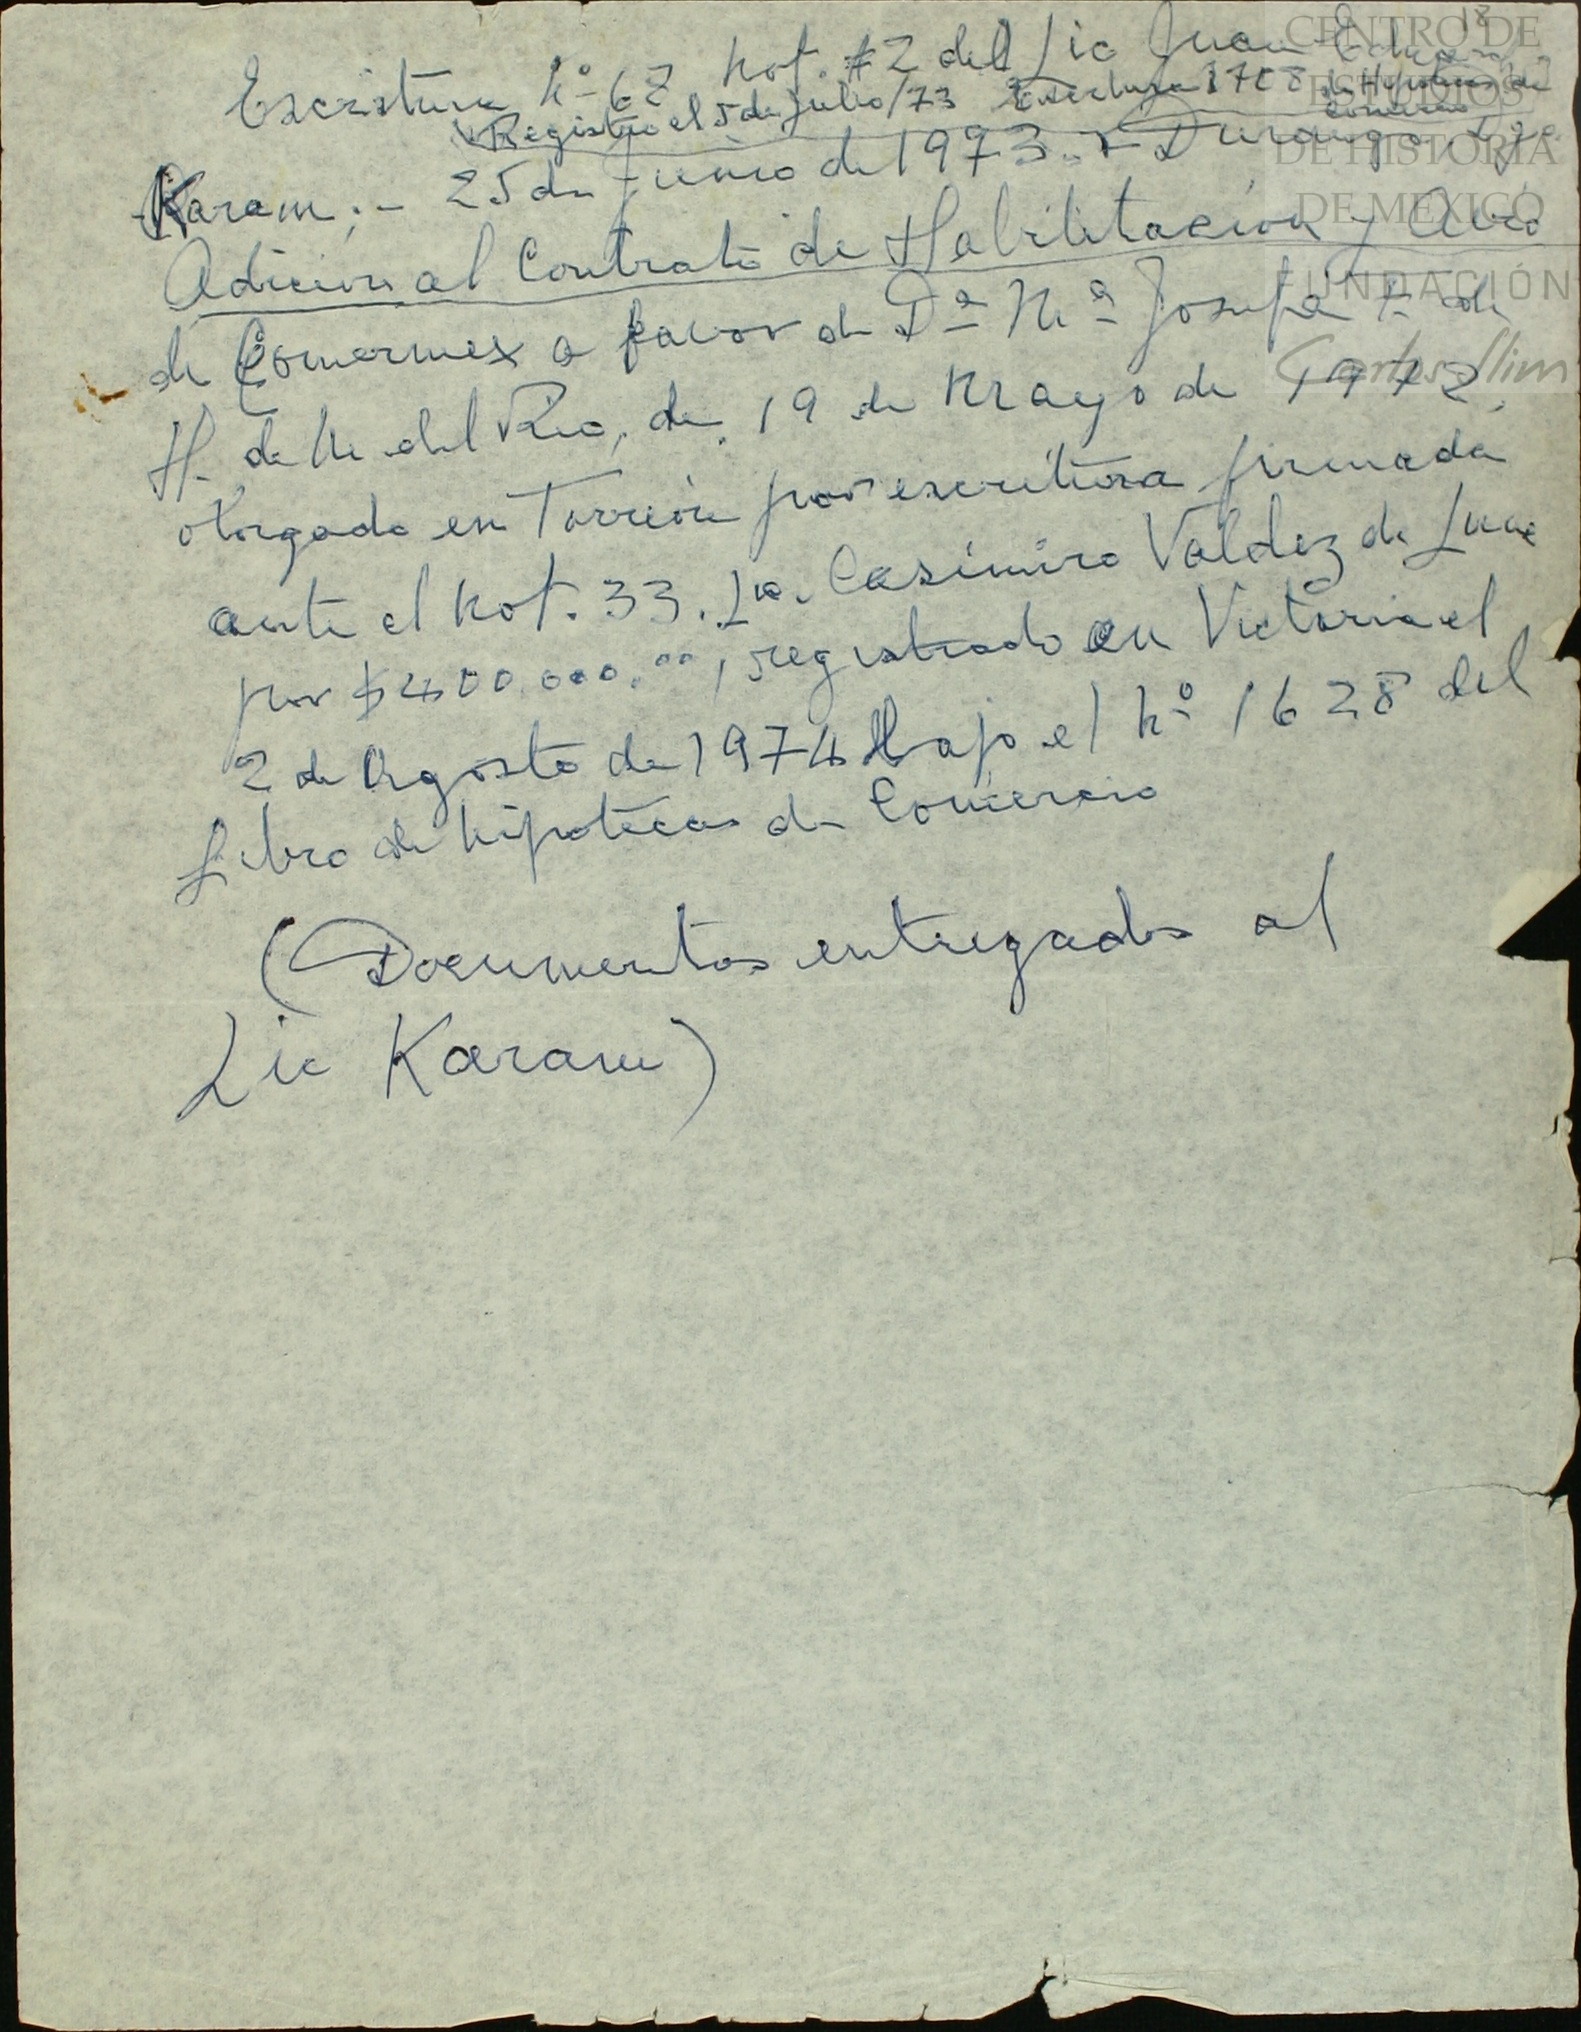 18
Escritura Nº 62 Not. #2 del Lic Juan
Registro el 5 de julio/73 1728 de Hipotecas del
Comercio
Karam.- 25 de Junio de 1973.- Durango
Adicion al Contrato de Habilitacion y Avio
de Comermex a favor de Dª Mª Josefa F. de
H. de M. del Rio, de 19 de Mayo de 1972,
otorgado en Torreón por escritura firmada
ante el Not. 33. Lic. Casimiro Valdez de Luna
por $400.000.00, registrado en Victoria el
2 de Agosto de 1974 bajo el Nº 1628 del
Libro de hipotecas de Comercio
(Documentos entregados al
Lic Karam)
CENTRO DE
ESTUDIOS
DE HISTORIA
DE MÉXICO
FUNDACIÓN
Carlos Slim